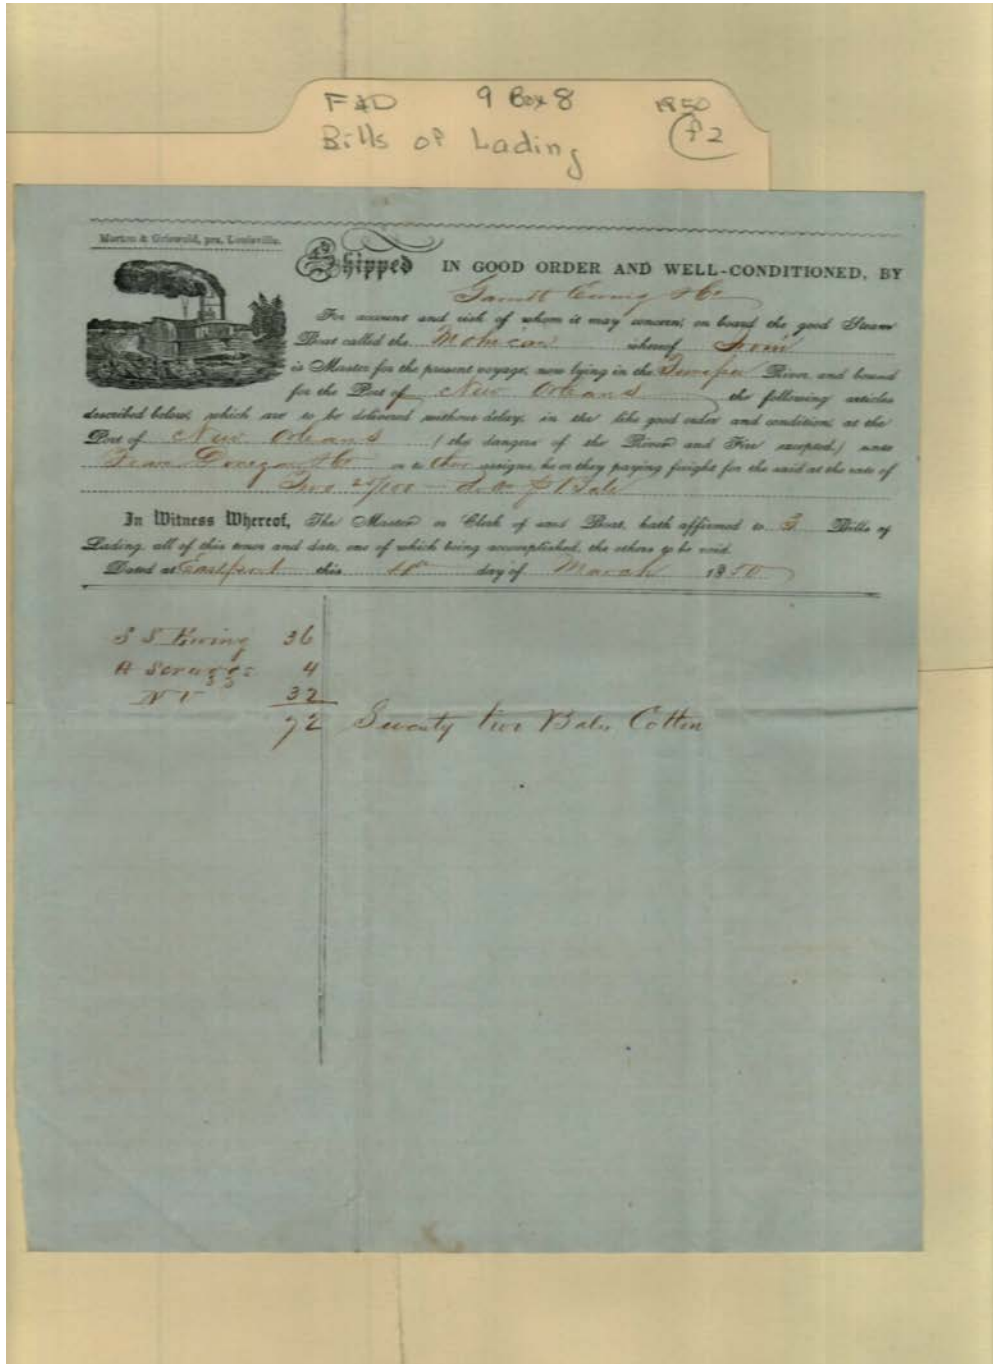 F&D 9 Box 8 1850
Bills of Lading f2
Morton & Griswold, prs. Louisville.
Shipped IN GOOD ORDER AND WELL-CONDITIONED, BY
Garrett Ewing & Co
For account and risk of whom it may concern, on board the good Steam
Boat called the Mohican whereof
is Master for the present voyage, now lying in the River and bound
for the Port of New Orleans the following articles
described below, which are to be delivered without delay, in the like good order and condition, at the
Port of New Orleans (the dangers of the River and Fire excepted,) unto
Fearn Donegan & Co or to their assigns, he or they paying freight for the said at the rate of
Two 25/100 Bale
In Witness Whereof, The Master or Clerk of said Boat, hath affirmed to 3 Bills of
Lading, all of this tenor and date, one of which being accomplished, the others to be void.
Dated at Eastport this day of March 1850
S S Ewing 36
A Scruggs 4
32
72 Seventy two Bales Cotton